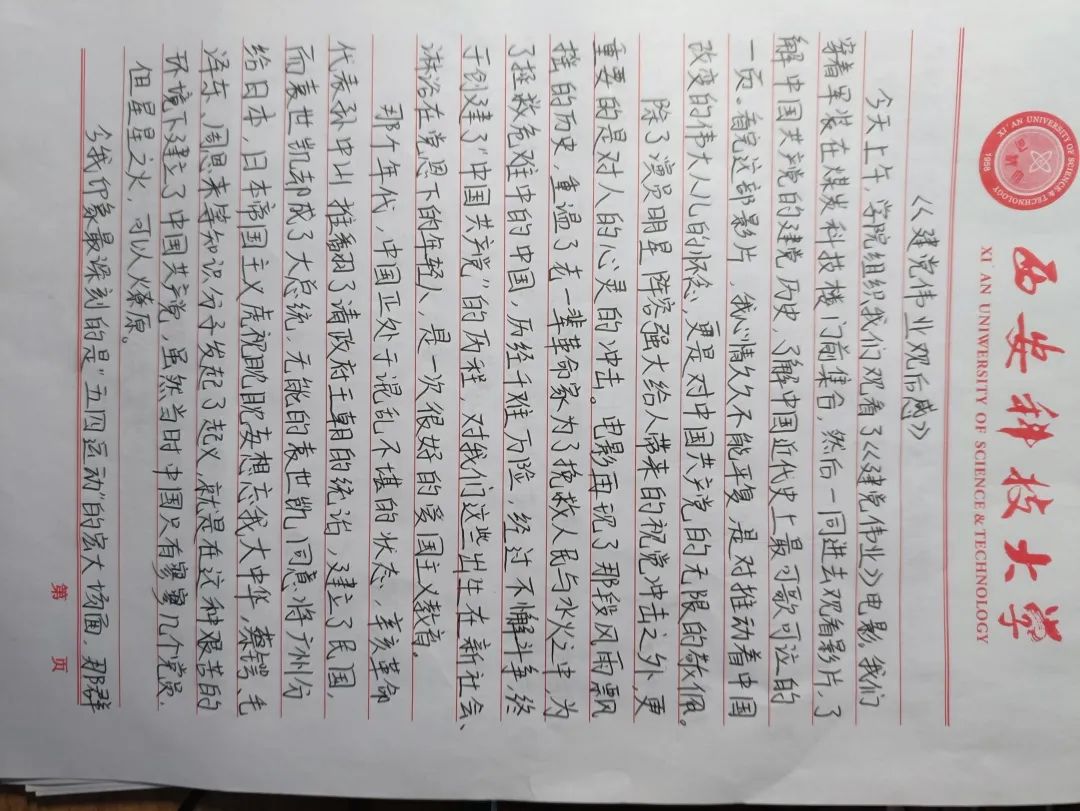 西安科技大学
XI' AN UNIWERSITY OF SCIENCE & TECHNOLOGY
XI' AN UNIVERSITY OF SCIENCE & TECHNOLOGY
1958
《建党伟业观后感》
今天上午,学院组织我们观看了《建党伟业》电影。我们
穿着军装在煤炭科技楼门前集合,然后一同进去观看影片,了
解中国共产党的建党历史,了解中国近代史上最可歌可泣的
一页。看完这部影片,我心情久久不能平复,是对推动着中国
改变的伟大人儿的怀念,更是对中国共产党的无限的敬佩。
除了演员明星阵容强大给人带来的视觉冲击之外,更
重要的是对人的心灵的冲击。电影再现了那段风雨飘
摇的历史,重温了老一辈革命家为了挽救人民与水火之中,为
了拯救危难中的中国,历经千难历险,经过不懈斗争,终
于创建了“中国共产党”的历程,对我们这些出生在新社会、
沐浴在党恩下的年轻人,是一次很好的爱国主义教育。
那个年代,中国正处于混乱不堪的状态,辛亥革命
代表孙中山推翻了清政府王朝的统治,建立了民国,
而袁世凯却成了大总统,无能的袁世凯同意将广州分
给日本,日本帝国主义虎视眈眈妄想忘我大中华,蔡锷、毛
泽东、周恩来等知识分子发起了起义,就是在这种艰苦的
环境下建立了中国共产党,虽然当时中国只有寥寥几个党员,
但星星之火,可以火燎原。
令我印象最深刻的是“五四运动”的宏大场面,那群
第 页